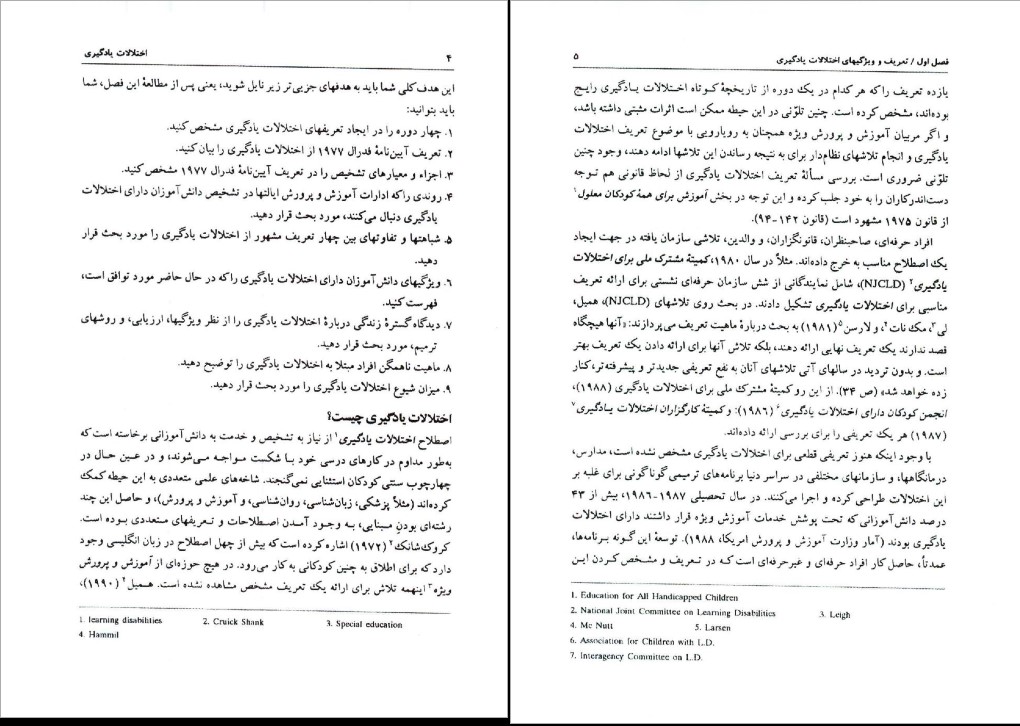 ۴
اختلالات یادگیری
این هدف کلی شما باید به هدفهای جزیی‌تر زیر نایل شوید، یعنی پس از مطالعهٔ این فصل، شما
باید بتوانید:
۱. چهار دوره را در ایجاد تعریفهای اختلالات یادگیری مشخص کنید.
۲. تعریف آیین‌نامهٔ فدرال ۱۹۷۷ از اختلالات یادگیری را بیان کنید.
۳. اجزاء و معیارهای تشخیص را در تعریف آیین‌نامهٔ فدرال ۱۹۷۷ مشخص کنید.
۴. روندی را که ادارات آموزش و پرورش ایالتها در تشخیص دانش‌آموزان دارای اختلالات
یادگیری دنبال می‌کنند، مورد بحث قرار دهید.
۵. شباهتها و تفاوتهای بین چهار تعریف مشهور از اختلالات یادگیری را مورد بحث قرار
دهید.
۶. ویژگیهای دانش‌آموزان دارای اختلالات یادگیری را که در حال حاضر مورد توافق است،
فهرست کنید.
۷. دیدگاه گسترهٔ زندگی دربارهٔ اختلالات یادگیری را از نظر ویژگیها، ارزیابی، و روشهای
ترمیم، مورد بحث قرار دهید.
۸. ماهیت ناهمگن افراد مبتلا به اختلالات یادگیری را توضیح دهید.
۹. میزان شیوع اختلالات یادگیری را مورد بحث قرار دهید.
اختلالات یادگیری چیست؟
اصطلاح اختلالات یادگیری۱ از نیاز به تشخیص و خدمت به دانش‌آموزانی برخاسته است که
به‌طور مداوم در کارهای درسی خود با شکست مواجه می‌شوند، و در عین حال در
چهارچوب سنتی کودکان استثنایی نمی‌گنجند. شاخه‌های علمی متعددی به این حیطه کمک
کرده‌اند (مثلاً پزشکی، زبان‌شناسی، روان‌شناسی، و آموزش و پرورش)، و حاصل این چند
رشته‌ای بودنِ مبنایی، به وجود آمدن اصطلاحات و تعریفهای متعددی بوده است.
کروک‌شانک۲ (۱۹۷۲) اشاره کرده است که بیش از چهل اصطلاح در زبان انگلیسی وجود
دارد که برای اطلاق به چنین کودکانی به کار می‌رود. در هیچ حوزه‌ای از آموزش و پرورش
ویژه۳ اینهمه تلاش برای ارائه یک تعریف مشخص مشاهده نشده است. همیل۴ (۱۹۹۰)،
1. learning disabilities 2. Cruick Shank 3. Special education
4. Hammil
۵
فصل اول / تعریف و ویژگیهای اختلالات یادگیری
یازده تعریف را که هر کدام در یک دوره از تاریخچهٔ کوتاه اختلالات یادگیری رایج
بوده‌اند، مشخص کرده است. چنین تلوّنی در این حیطه ممکن است اثرات مثبتی داشته باشد،
و اگر مربیان آموزش و پرورش ویژه همچنان به رویارویی با موضوع تعریف اختلالات
یادگیری و انجام تلاشهای نظام‌دار برای به نتیجه رساندن این تلاشها ادامه دهند، وجود چنین
تلوّنی ضروری است. بررسی مسألهٔ تعریف اختلالات یادگیری از لحاظ قانونی هم توجه
دست‌اندرکاران را به خود جلب کرده و این توجه در بخش آموزش برای همهٔ کودکان معلول۱
از قانون ۱۹۷۵ مشهود است (قانون ۱۴۲-۹۴).
افراد حرفه‌ای، صاحبنظران، قانونگزاران، و والدین، تلاشی سازمان یافته در جهت ایجاد
یک اصطلاح مناسب به خرج داده‌اند. مثلاً در سال ۱۹۸۰، کمیتهٔ مشترک ملی برای اختلالات
یادگیری۲ (NJCLD)، شامل نمایندگانی از شش سازمان حرفه‌ای نشستی برای ارائه تعریف
مناسبی برای اختلالات یادگیری تشکیل دادند. در بحث روی تلاشهای (NJCLD)، همیل،
لی۳، مک نات۴، و لارسن۵ (۱۹۸۱) به بحث دربارهٔ ماهیت تعریف می‌پردازند: «آنها هیچگاه
قصد ندارند یک تعریف نهایی ارائه دهند، بلکه تلاش آنها برای ارائه دادن یک تعریف بهتر
است. و بدون تردید در سالهای آتی تلاشهای آنان به نفع تعریفی جدیدتر و پیشرفته‌تر، کنار
زده خواهد شد» (ص ۳۴). از این رو کمیتهٔ مشترک ملی برای اختلالات یادگیری (۱۹۸۸)،
انجمن کودکان دارای اختلالات یادگیری۶ (۱۹۸۶): و کمیتهٔ کارگزاران اختلالات یادگیری۷
(۱۹۸۷) هر یک تعریفی را برای بررسی ارائه داده‌اند.
با وجود اینکه هنوز تعریفی قطعی برای اختلالات یادگیری مشخص نشده است، مدارس،
درمانگاهها، و سازمانهای مختلفی در سراسر دنیا برنامه‌های ترمیمی گوناگونی برای غلبه بر
این اختلالات طراحی کرده و اجرا می‌کنند. در سال تحصیلی ۱۹۸۷-۱۹۸۶، بیش از ۴۳
درصد دانش‌آموزانی که تحت پوشش خدمات آموزش ویژه قرار داشتند دارای اختلالات
یادگیری بودند (آمار وزارت آموزش و پرورش امریکا، ۱۹۸۸). توسعهٔ این گونه برنامه‌ها،
عمدتاً، حاصل کار افراد حرفه‌ای و غیرحرفه‌ای است که در تعریف و مشخص کردن این
1. Education for All Handicapped Children
2. National Joint Committee on Learning Disabilities 3. Leigh
4. Mc Nutt 5. Larsen
6. Association for Children with L.D.
7. Interagency Committee on L.D.